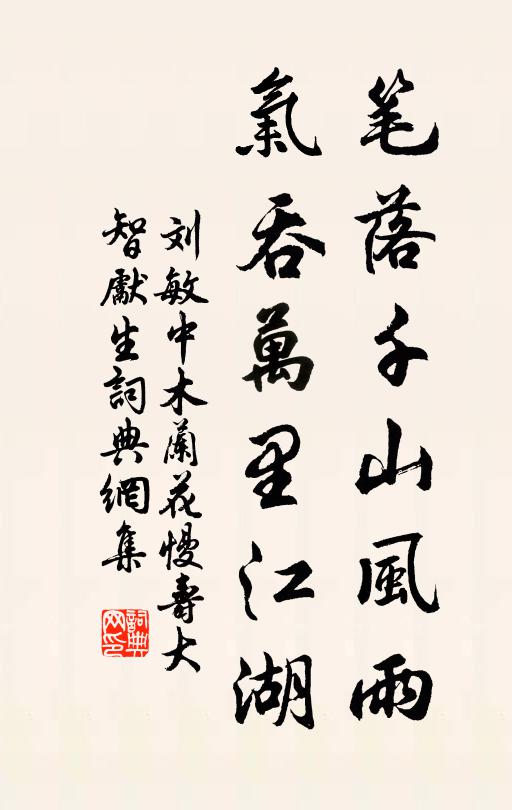 笔落千山風雨
氣吞萬里江湖
刘敏中木蘭花慢壽大
智獻生詞典網集
詞典
网印